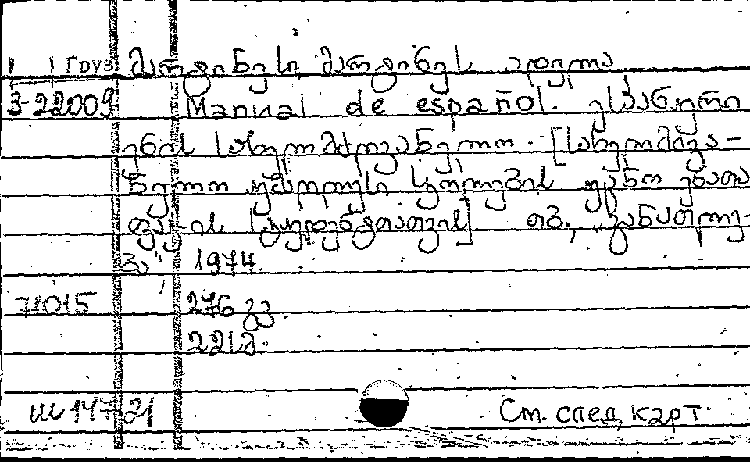 Груз მარტინესი, მარტინეს ადელა
3-22009 Manual de español. ესპანური
ენის სახელმძღვანელო. [სახელმძღვა-
ნელო უმაღლესი სკოლების უცხო ენათა
ფაკ-ის სტუდენტთათვის] თბ., „განათლე-
ბა", 1974.
71015 276 გვ.
221 მ.
Ш 147.21 См. след. карт.